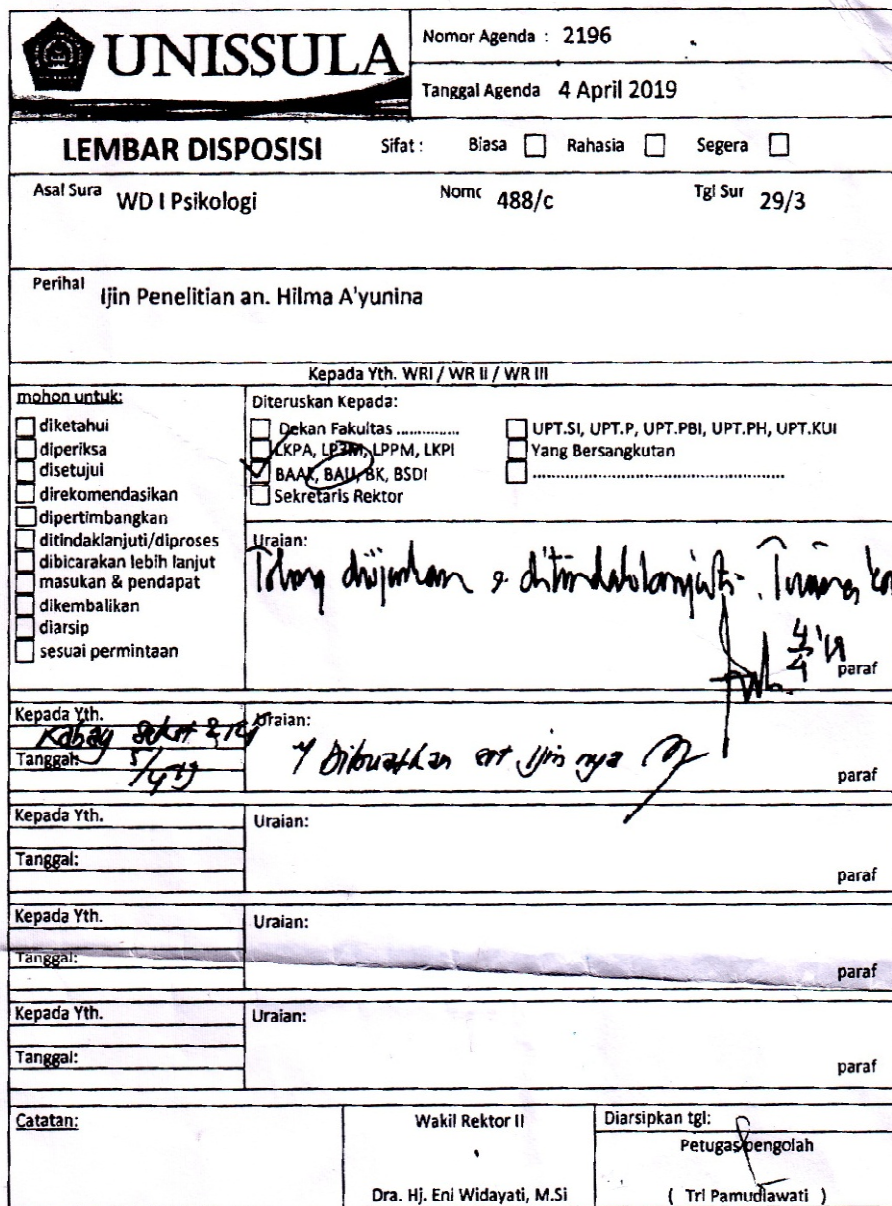 UNISSULA
Nomor Agenda : 2196
Tanggal Agenda 4 April 2019
LEMBAR DISPOSISI Sifat : Biasa Rahasia Segera
Asal Sura WD I Psikologi Nomc 488/c Tgl Sur 29/3
Perihal Ijin Penelitian an. Hilma A'yunina
Kepada Yth. WRI / WR II / WR III
mohon untuk:
diketahui
diperiksa
disetujui
direkomendasikan
dipertimbangkan
ditindaklanjuti/diproses
dibicarakan lebih lanjut
masukan & pendapat
dikembalikan
diarsip
sesuai permintaan
Diteruskan Kepada:
Dekan Fakultas ...............
LKPA, LP3M, LPPM, LKPI
BAAK, BAU, BK, BSDI
Sekretaris Rektor
UPT.SI, UPT.P, UPT.PBI, UPT.PH, UPT.KUI
Yang Bersangkutan
......................................................
Uraian:
Tolong diijinkan & ditindaklanjuti.
4/4 '19
paraf
Kepada Yth. Kabag
Tanggal: 5/4 '19
Uraian:
Dibuatkan srt ijin nya
paraf
Kepada Yth.
Tanggal:
Uraian:
paraf
Kepada Yth.
Tanggal:
Uraian:
paraf
Kepada Yth.
Tanggal:
Uraian:
paraf
Catatan:
Wakil Rektor II
Dra. Hj. Eni Widayati, M.Si
Diarsipkan tgl:
Petugas pengolah
( Tri Pamudiawati )